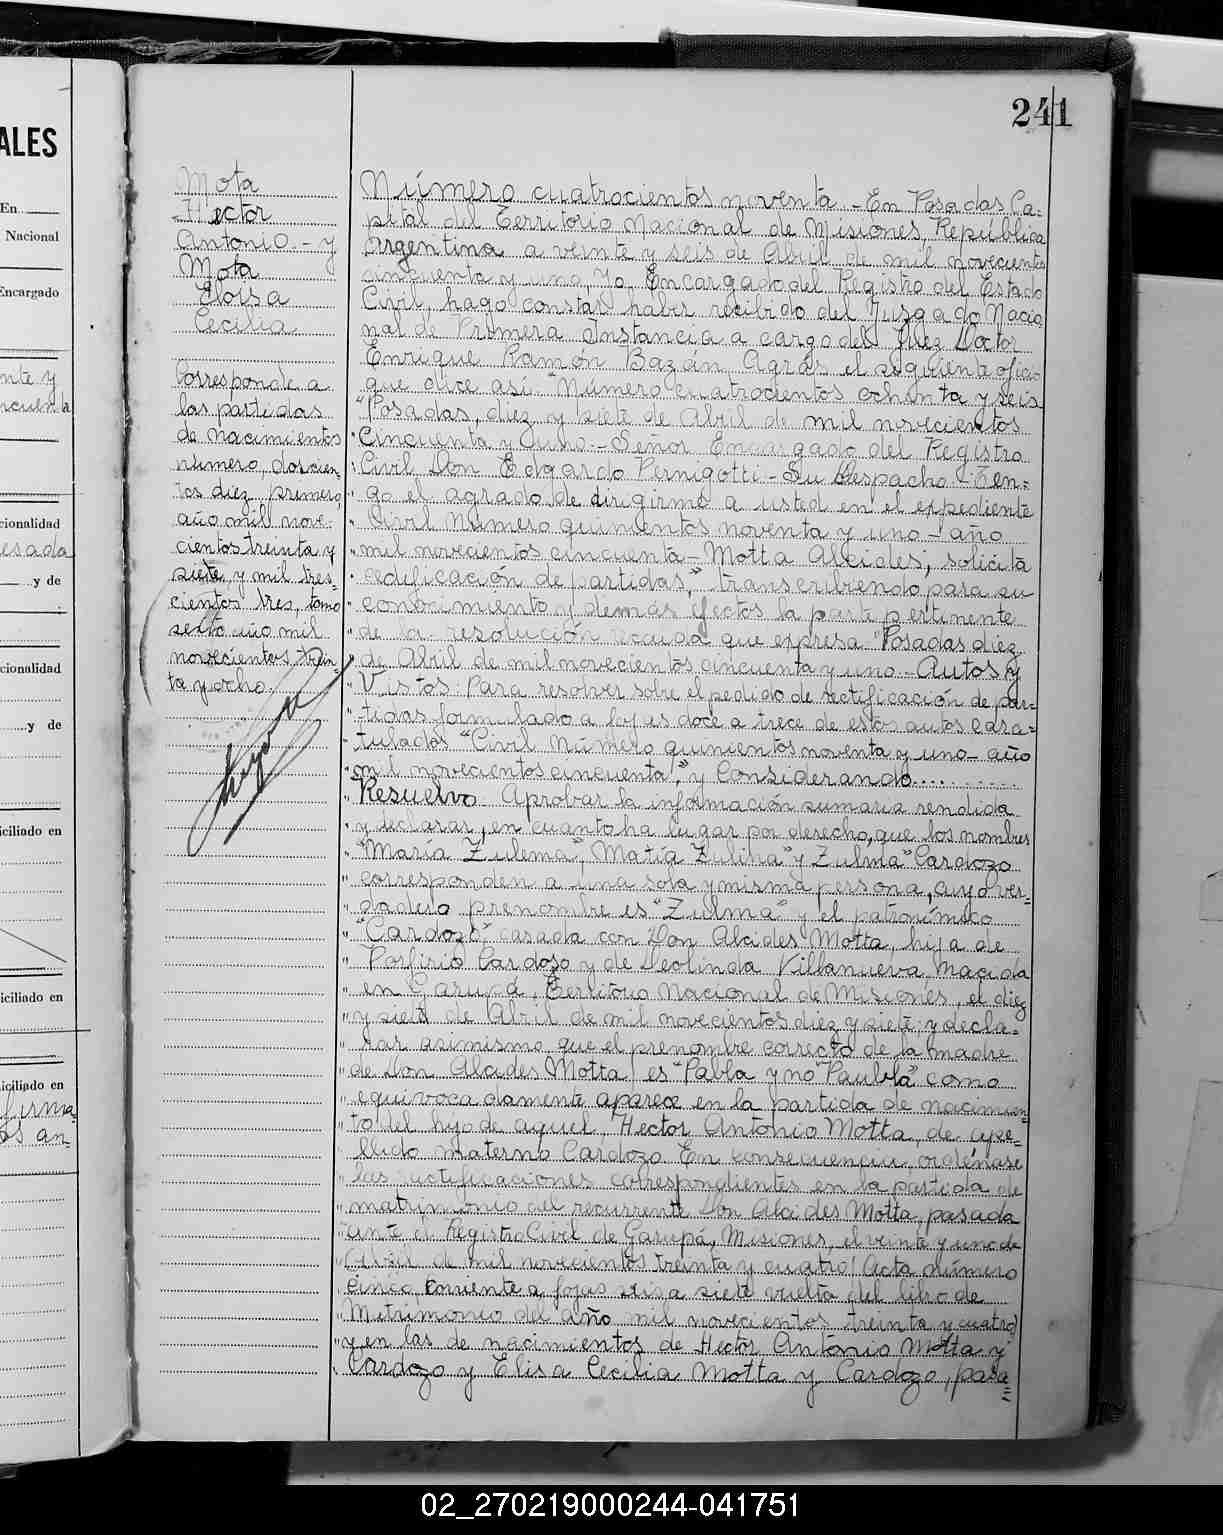 241
ALES
En
Nacional
Encargado
nte y
ncuenta
cionalidad
esada
y de
cionalidad
y de
iciliado en
iciliado en
iciliado en
firma=
os an=
Mota
Hector
Antonio.- y
Mota
Eloisa
Cecilia.
Corresponde a
las partidas
de nacimientos
número, doscien=
tos diez, primero,
año mil nove=
cientos treinta y
siete, y mil tres=
cientos tres, tomo
sexto año mil
novecientos trein=
ta y ocho.
Número cuatrocientos noventa.- En Posadas, Ca=
pital del Territorio Nacional de Misiones, República
Argentina a veinte y seis de Abril de mil novecientos
cincuenta y uno, Yo, Encargado del Registro del Estado
Civil, hago constar haber recibido del Juzgado Nacio
nal de Primera Instancia a cargo del Juez Doctor
Enrique Ramón Bazán Agrás el siguiente oficio
que dice así: "Número cuatrocientos ochenta y seis
"Posadas, diez y siete de Abril de mil novecientos
" Cincuenta y uno.- Señor Encargado del Registro
" Civil Don Edgardo Pernigotti - Su Despacho.- Ten=
" go el agrado de dirigirme a usted en el expediente
" Civil número quinientos noventa y uno - año
" mil novecientos cincuenta - Motta Alcides; solicita
" rectificación de partidas," transcribiendo para su
" conocimiento y demás efectos la parte pertinente
" de la resolución recaída que expresa "Posadas diez
" de Abril de mil novecientos cincuenta y uno.- Autos y
" Vistos: Para resolver sobre el pedido de rectificación de par=
" tidas formulado a fojas doce a trece de estos autos cara=
" tulados "Civil número quinientos noventa y uno - año
" mil novecientos cincuenta", y Considerando.............
" Resuelvo: Aprobar la información sumaria rendida
" y declarar, en cuanto ha lugar por derecho, que los nombres
" "María Zulema", María Zulina" y Zulma" Cardozo
" corresponden a una sola y misma persona, cuyo ver=
" dadero prenombre es "Zulma" y el patronímico
" "Cardozo", casada con Don Alcides Motta, hija de
" Porfirio Cardozo y de Deolinda Villanueva, nacida
" en Garupá, Territorio Nacional de Misiones, el diez
" y siete de Abril de mil novecientos diez y siete; y decla=
" rar asimismo que el prenombre correcto de la madre
" de Don Alcides Motta, es "Pabla" y no "Paubla" como
" equivocadamente aparece en la partida de nacimien=
" to del hijo de aquel, Hector Antonio Motta, de ape=
" llido materno Cardozo. En consecuencia, ordénase
" las rectificaciones correspondientes en la partida de
" matrimonio del recurrente Don Alcides Motta, pasada
" ante el Registro Civil de Garupá, Misiones, el veinte y uno de
" Abril de mil novecientos treinta y cuatro, Acta número
" cinco, corriente a fojas seis a siete vuelta del libro de
" Matrimonio del año mil novecientos treinta y cuatro,
" y en las de nacimientos de Hector Antonio Motta y
" Cardozo y Elisa Cecilia Motta y Cardozo, pasa=
02_270219000244-041751